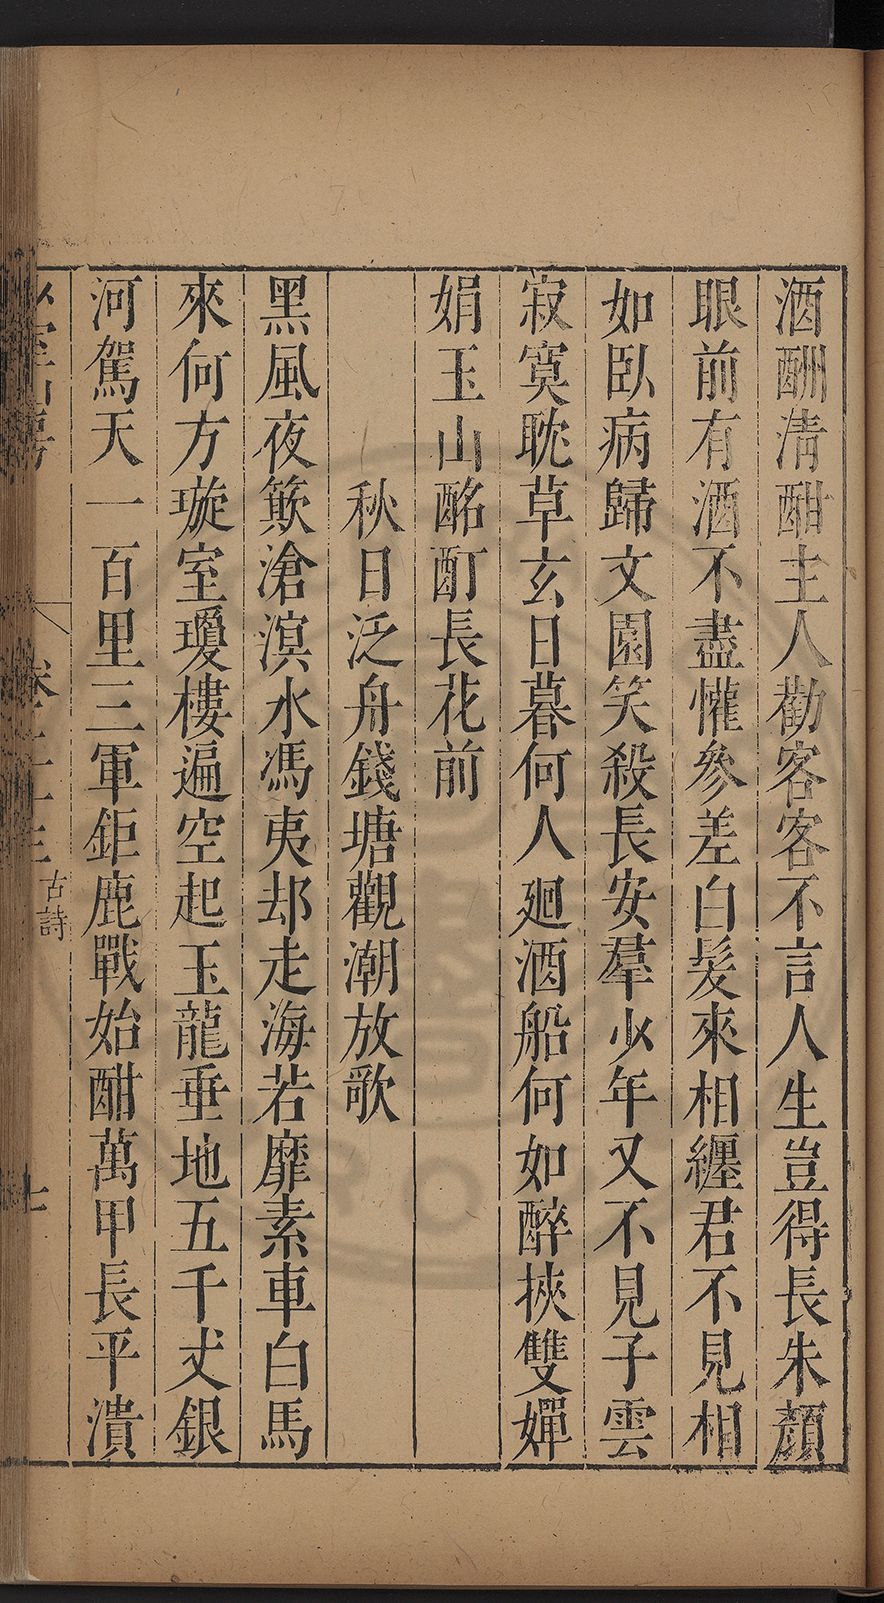 酒酬淸酣主人勸客客不言人生豈得長朱顏
眼前有酒不盡懽參差白髮來相纏君不見相
如臥病歸文園笑殺長安羣少年又不見子雲
寂寞耽草玄日暮何人廻酒船何如醉挾雙嬋
娟玉山酩酊長花前
秋日泛舟錢塘觀潮放歌
黑風夜簸滄溟水馮夷却走海若靡素車白馬
來何方璇室瓊樓遍空起玉龍垂地五千丈銀
河駕天一百里三軍鉅鹿戰始酣萬甲長平潰
古詩
七